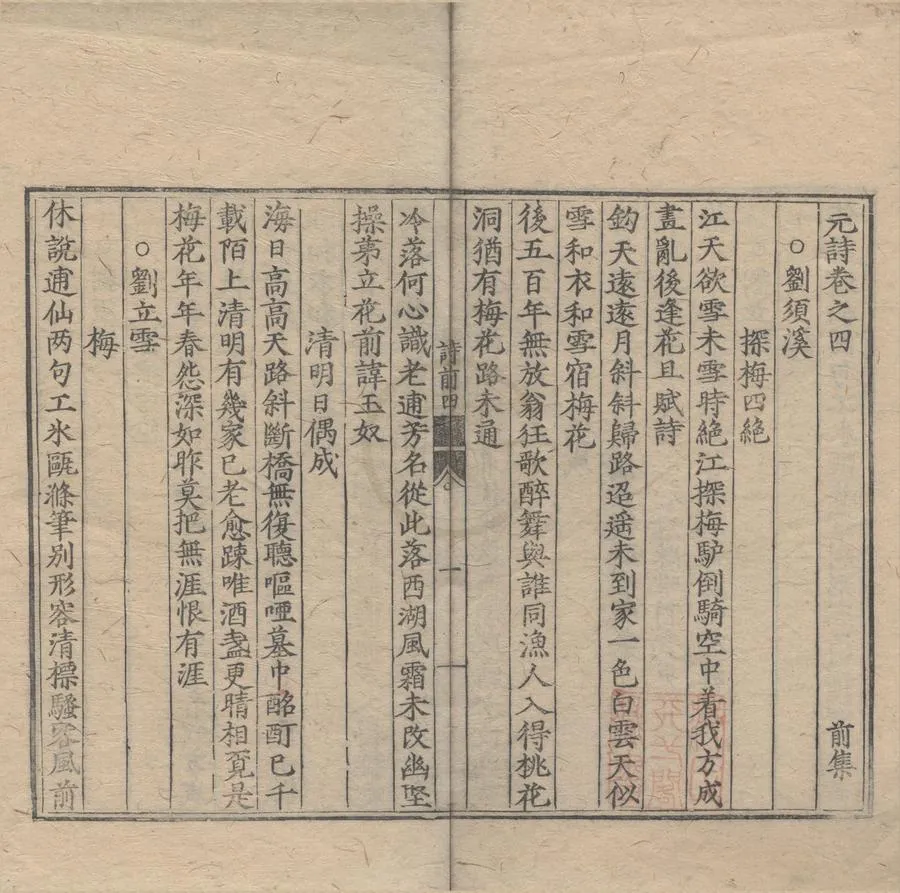 元詩卷之四 前集
○劉須溪
探梅四絶
江天欲雪未雪時絶江探梅馿倒騎空中着我方成
畫亂後逢花且賦詩
鈞天遠遠月斜斜歸路迢遥未到家一色白雲天似
雪和衣和雪宿梅花
後五百年無放翁狂歌醉舞與誰同漁人入得桃花
洞猶有梅花路未通
詩前四 一
冷落何心識老逋芳名從此落西湖風霜未改幽堅
操苐立花前諱玉奴
清明日偶成
海日高高天路斜斷橋無復聽嘔啞墓中酩酊已千
載陌上清明有幾家已老愈踈唯酒盞更晴相覓是
梅花年年春怨深如昨莫把無涯恨有涯
○劉立雪
梅
休說逋仙两句工氷甌滌筆别形容清標騷客風前